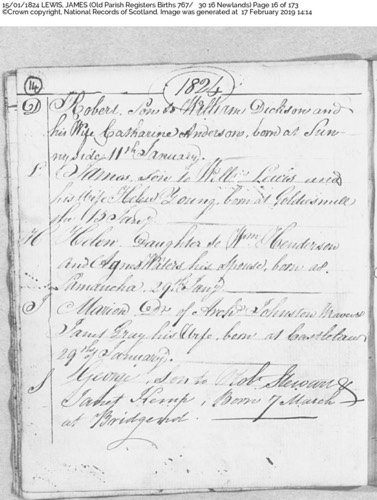 15/01/1824 LEWIS, JAMES (Old Parish Registers Births 767/ 30 16 Newlands) Page 16 of 173
©Crown copyright, National Records of Scotland. Image was generated at 17 February 2019 14:14
14
1824
D Robert, Son to William Dickson and
his Wife Catharine Anderson, born at Sun-
ny side 11th January.
James, son to Willm Lewis and
his Wife Helen Young, born at
the 15 Jany
H Helen Daughter to Wm Henderson
and Agnes Waters his Spouse, born at
Lamancha, 29th Jany
J Marion Dr of Archd Johnston
Janet Gray his Wife, born at Castlelaw
29th of January.
S George, son to Robt Stewart &
Janet Kemp, Born 7 March
at Bridgend